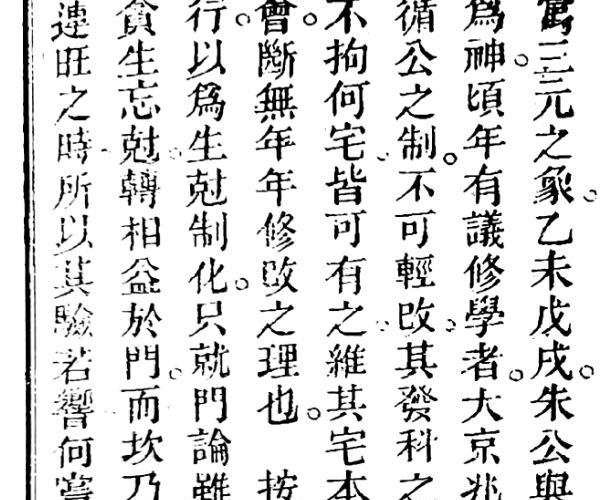 寓三元之象乙未戊戌朱公與
爲神頃年有議修學者大京兆
循公之制不可輕改其發科之
不拘何宅皆可有之維其宅本
會斷無年年修改之理也 按
行以爲生尅制化只就門論雖
貪生忘尅轉相益於門而坎乃
連旺之時所以其驗若響何嘗